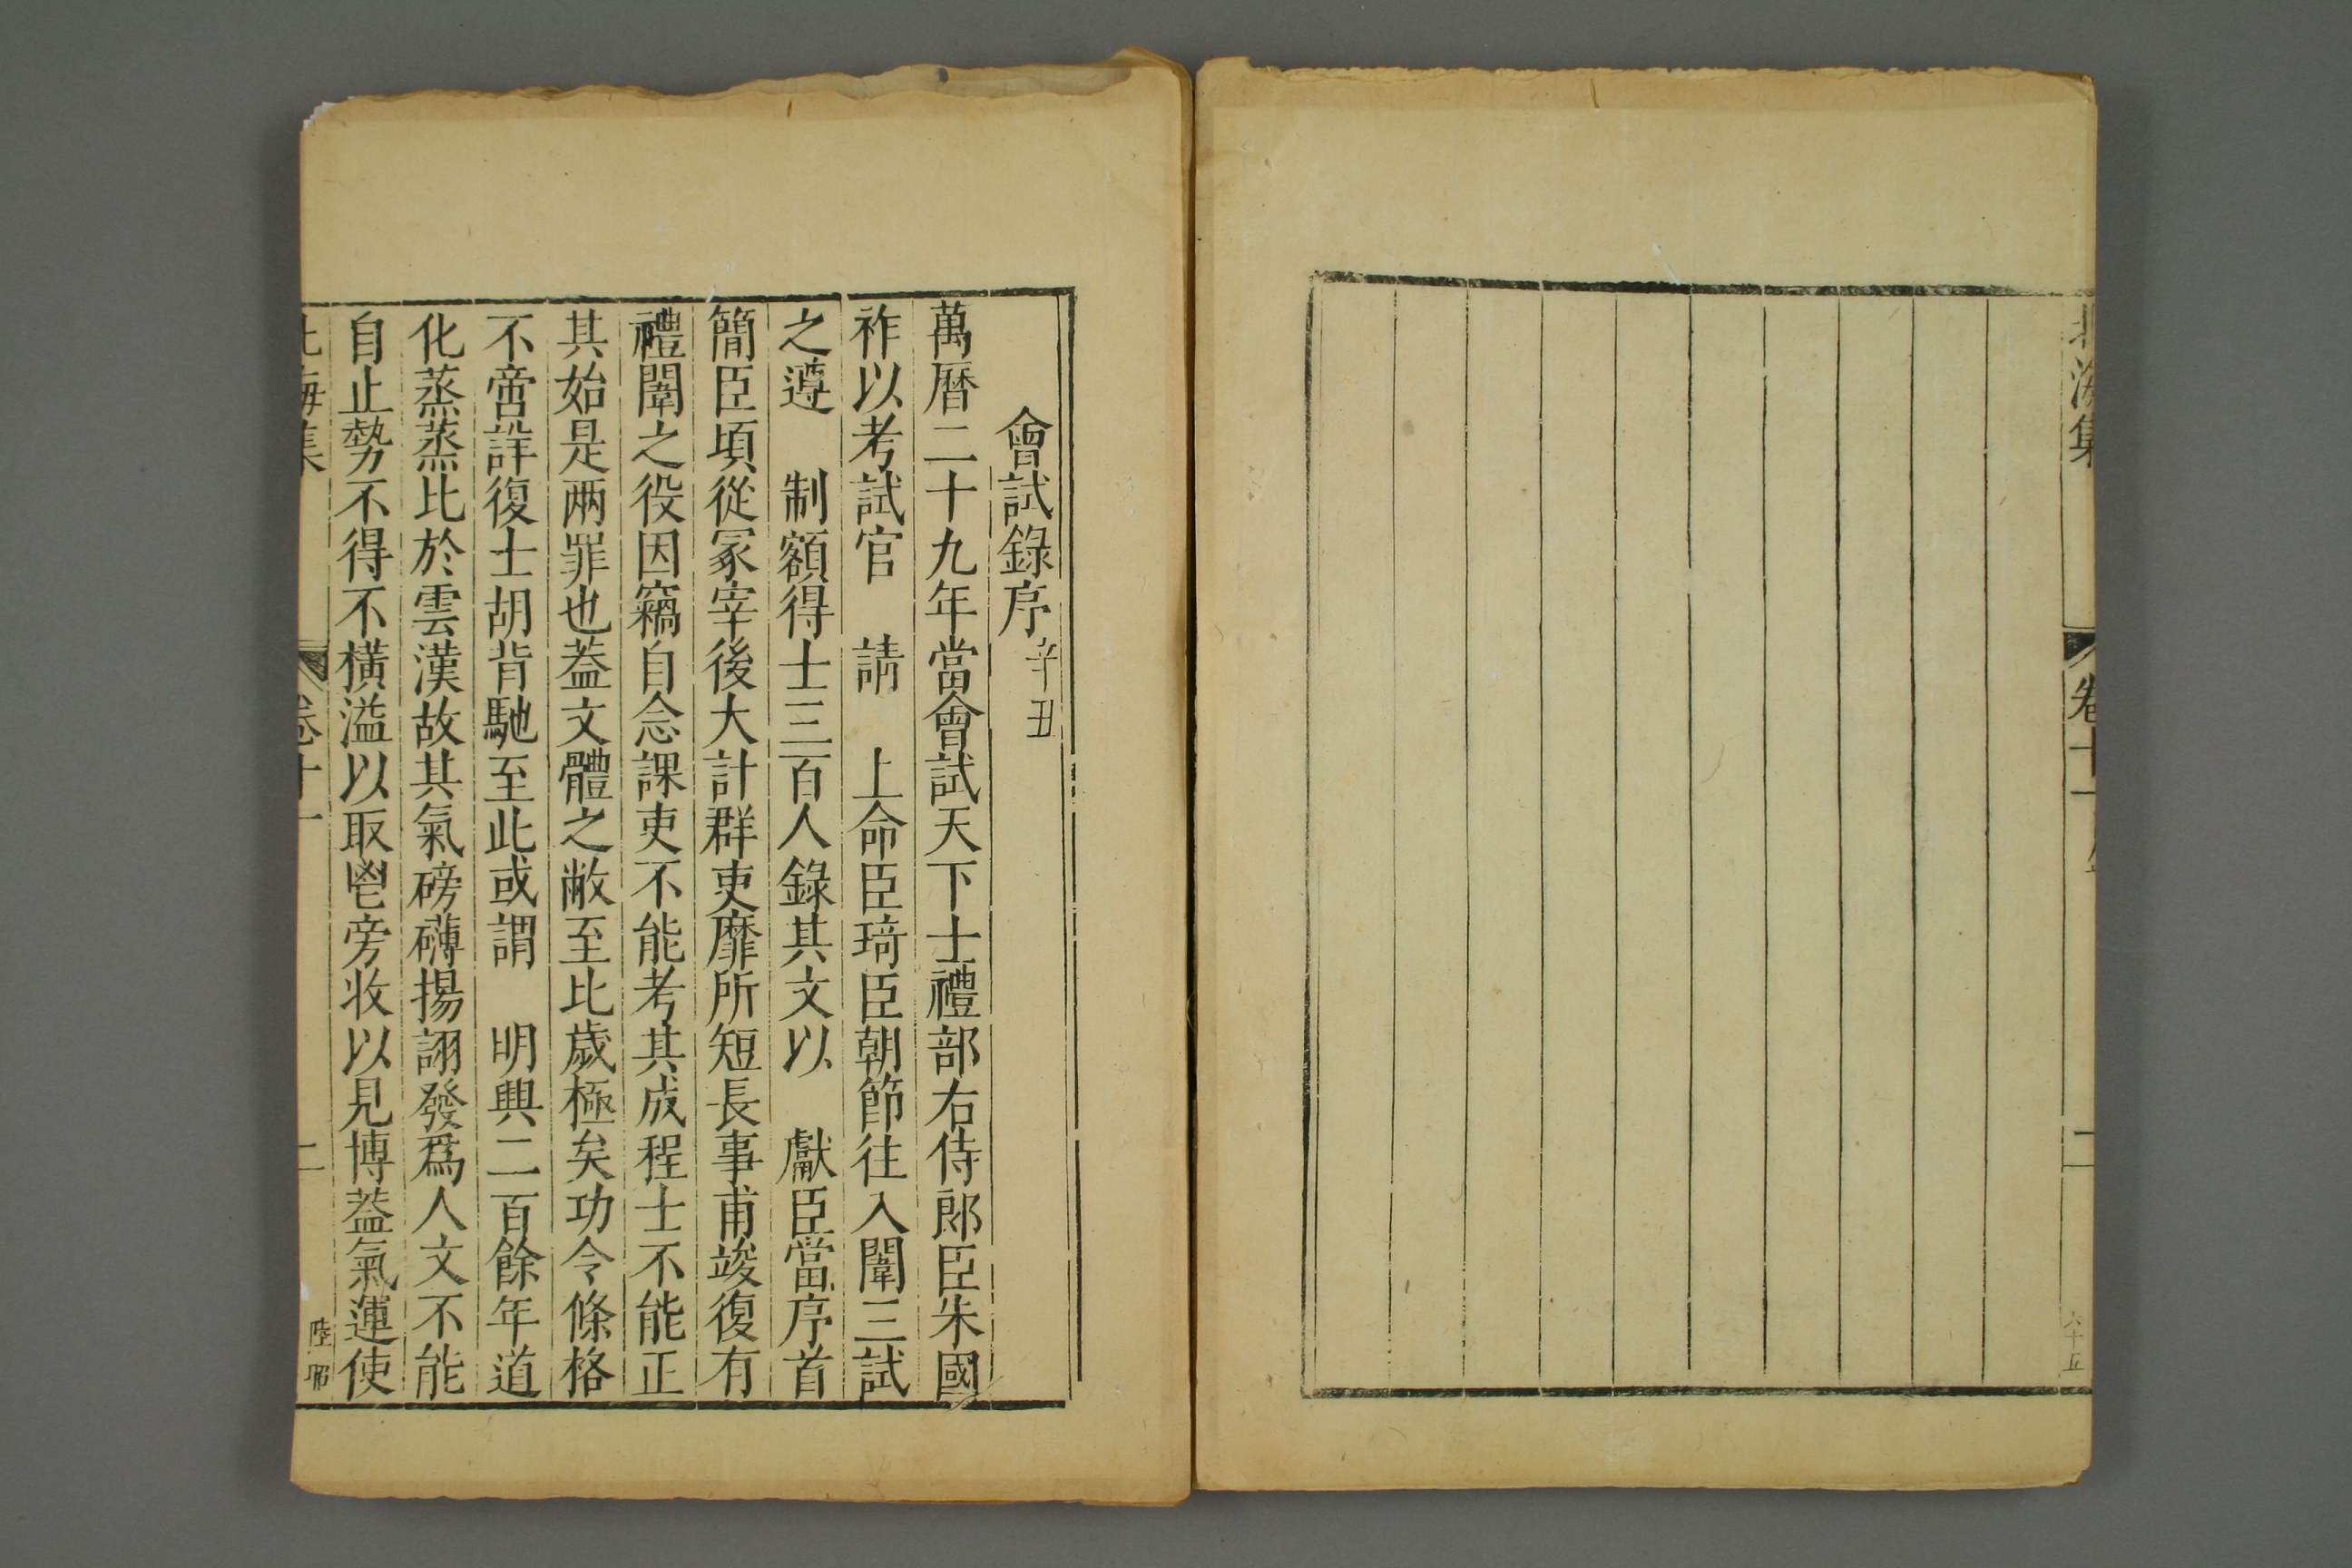 北海集
卷十一
二
六十五
會試錄序辛丑
萬曆二十九年當會試天下士禮部右侍郎臣朱國
祚以考試官　請　上命臣琦臣朝節往入闈三試
之遵　制額得士三百人錄其文以　獻臣當序首
簡臣頃從冢宰後大計群吏靡所短長事甫竣復有
禮闈之役因竊自念課吏不能考其成程士不能正
其始是两罪也葢文體之敝至比歲極矣功令條格
不啻詳復士胡背馳至此或謂　明興二百餘年道
化蒸蒸比於雲漢故其氣磅礴揚詡發爲人文不能
自止勢不得不橫溢以取鬯旁收以見博葢氣運使
北海集
卷十一
二